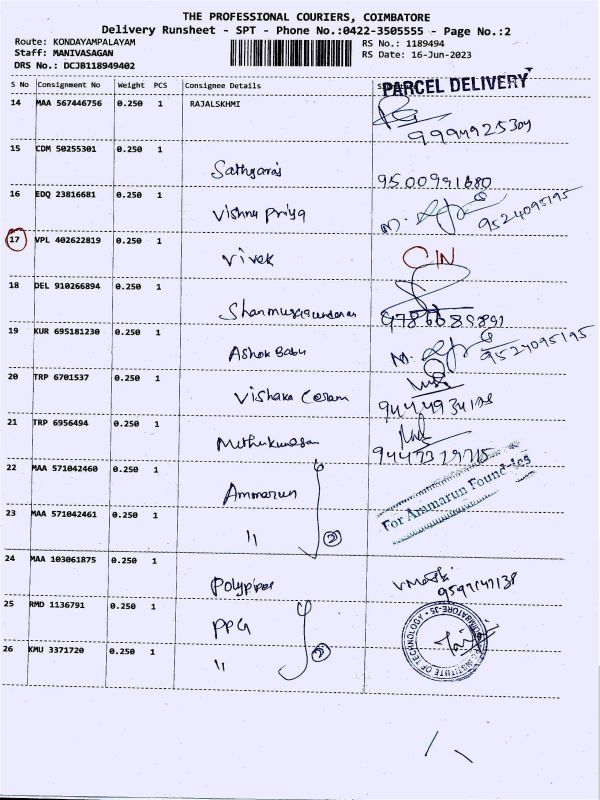 THE PROFESSIONAL COURIERS, COIMBATORE
Delivery Runsheet - SPT - Phone No.:0422-3505555 - Page No.:2
Route: KONDAYAMPALAYAM
RS No.: 1189494
Staff: MANIVASAGAN
RS Date: 16-Jun-2023
DRS No.: DCJB118949402
PARCEL DELIVERY
S No Consignment No Weight PCS Consignee Details
14 MAA 567446756 0.250 1 RAJALSKHMI
9994925304
15 CDM 50255301 0.250 1
Sathyaraj 9500991680
16 EDQ 23816681 0.250 1
Vishnu Priya 9524095195
17 VPL 402622819 0.250 1
Vivek C/N
18 DEL 910266894 0.250 1
19 KUR 695181230 0.250 1
Ashok Babu 9524095195
20 TRP 6701537 0.250 1
Vishaka
21 TRP 6956494 0.250 1
Muthukumaran
22 MAA 571042460 0.250 1
Ammarun For Ammarun Foundries
23 MAA 571042461 0.250 1
" 2
24 MAA 103061875 0.250 1
Polypipes
25 RMD 1136791 0.250 1
PPG
26 KMU 3371720 0.250 1
" 2